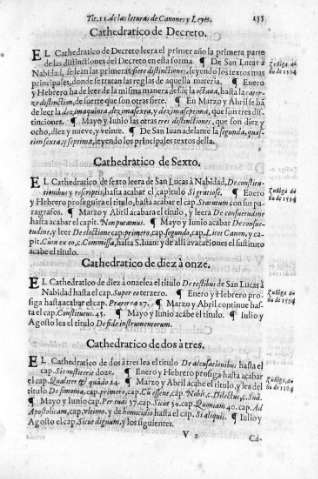 Tit. 21. de las leturas de Canones y Leyes. 135
Cathedratico de Decreto.
EL Cathedratico de Decreto leera el primer año la primera parte
de las distinctiones del Decreto en esta forma. ¶ De San Lucas à
Nabidad, lean las primeras siete distinctiones, leyendo los textos mas
principales, donde se tratan las reglas de aquella materia. ¶ Enero
y Hebrero ha de leer de la misma manera desde la octaua, hasta la
distinction, de suerte que son otras siete. ¶ En Março y Abril se ha
de leer la dezimaquinta, dezimasexta, y dezimaseptima, que son tres dis-
tinctiones. ¶ Mayo y Iunio las otras distinctiones, que son diez y
ocho, diez y nueue, y veinte. ¶ De San Iuan adelante la segunda, quar-
ta, sexta, y septima, leyendo los principales textos dellas.
Cathedratico de Sexto.
EL Cathedratico, de sexto leera de San Lucas à Nabidad, De constitu-
tionibus y rescriptis, hasta acabar el capitulo Si pro te. ¶ Enero
y Hebrero prosiguira el titulo, hasta acabar el cap. Statutum con sus pa-
ragrafos. ¶ Março y Abril acabara el titulo, y leera De consuetudine
hasta acabar el capit. Non putamus. ¶ Mayo y Iunio acabar De consue-
tudine, y leer De electione cap. primero, cap. segundo, cap. Licet Canon. y ca-
pit. Cum ex eo, c. Commissa, hasta S. Iuan y de alli a vacaciones el sustituto
acabe el titulo.
Cathedratico de diez à onze.
EL Cathedratico de diez à onze lea el titulo De testibus de San Lucas à
Nabidad hasta el cap. Super eo terrero. ¶ Enero y Hebrero pro-
siga hasta acabar el cap. Præterea 27. ¶ Março y Abril continue has-
ta el cap. Constitutus. 45. ¶ Mayo y Iunio acabe el titulo. ¶ Iulio y
Agosto lea el titulo De fide instrumentorum.
Cathedratico de dos à tres.
EL Cathedratico de dos à tres lea el titulo De accusationibus hasta el
cap. Sicut doze. ¶ Enero y Hebrero prosiga hasta acabar
el cap. Qualiter & quādo 24. ¶ Março y Abril acabe el titulo, y lea del
titulo De simonia, cap. primero, cap. Cū essent, cap. Nobis, c. Dilectus,
¶ Mayo y Iunio cap. Per tuas 37. cap. Sicut 39. cap. Quoniam 40. cap. Ad
Apostolicam, cap. vltimo. y de homicidio hasta el cap. Si aliquis. ¶ Iulio y
Agosto el cap. Sicut dignum, y los siguientes.
V 2 Ca-